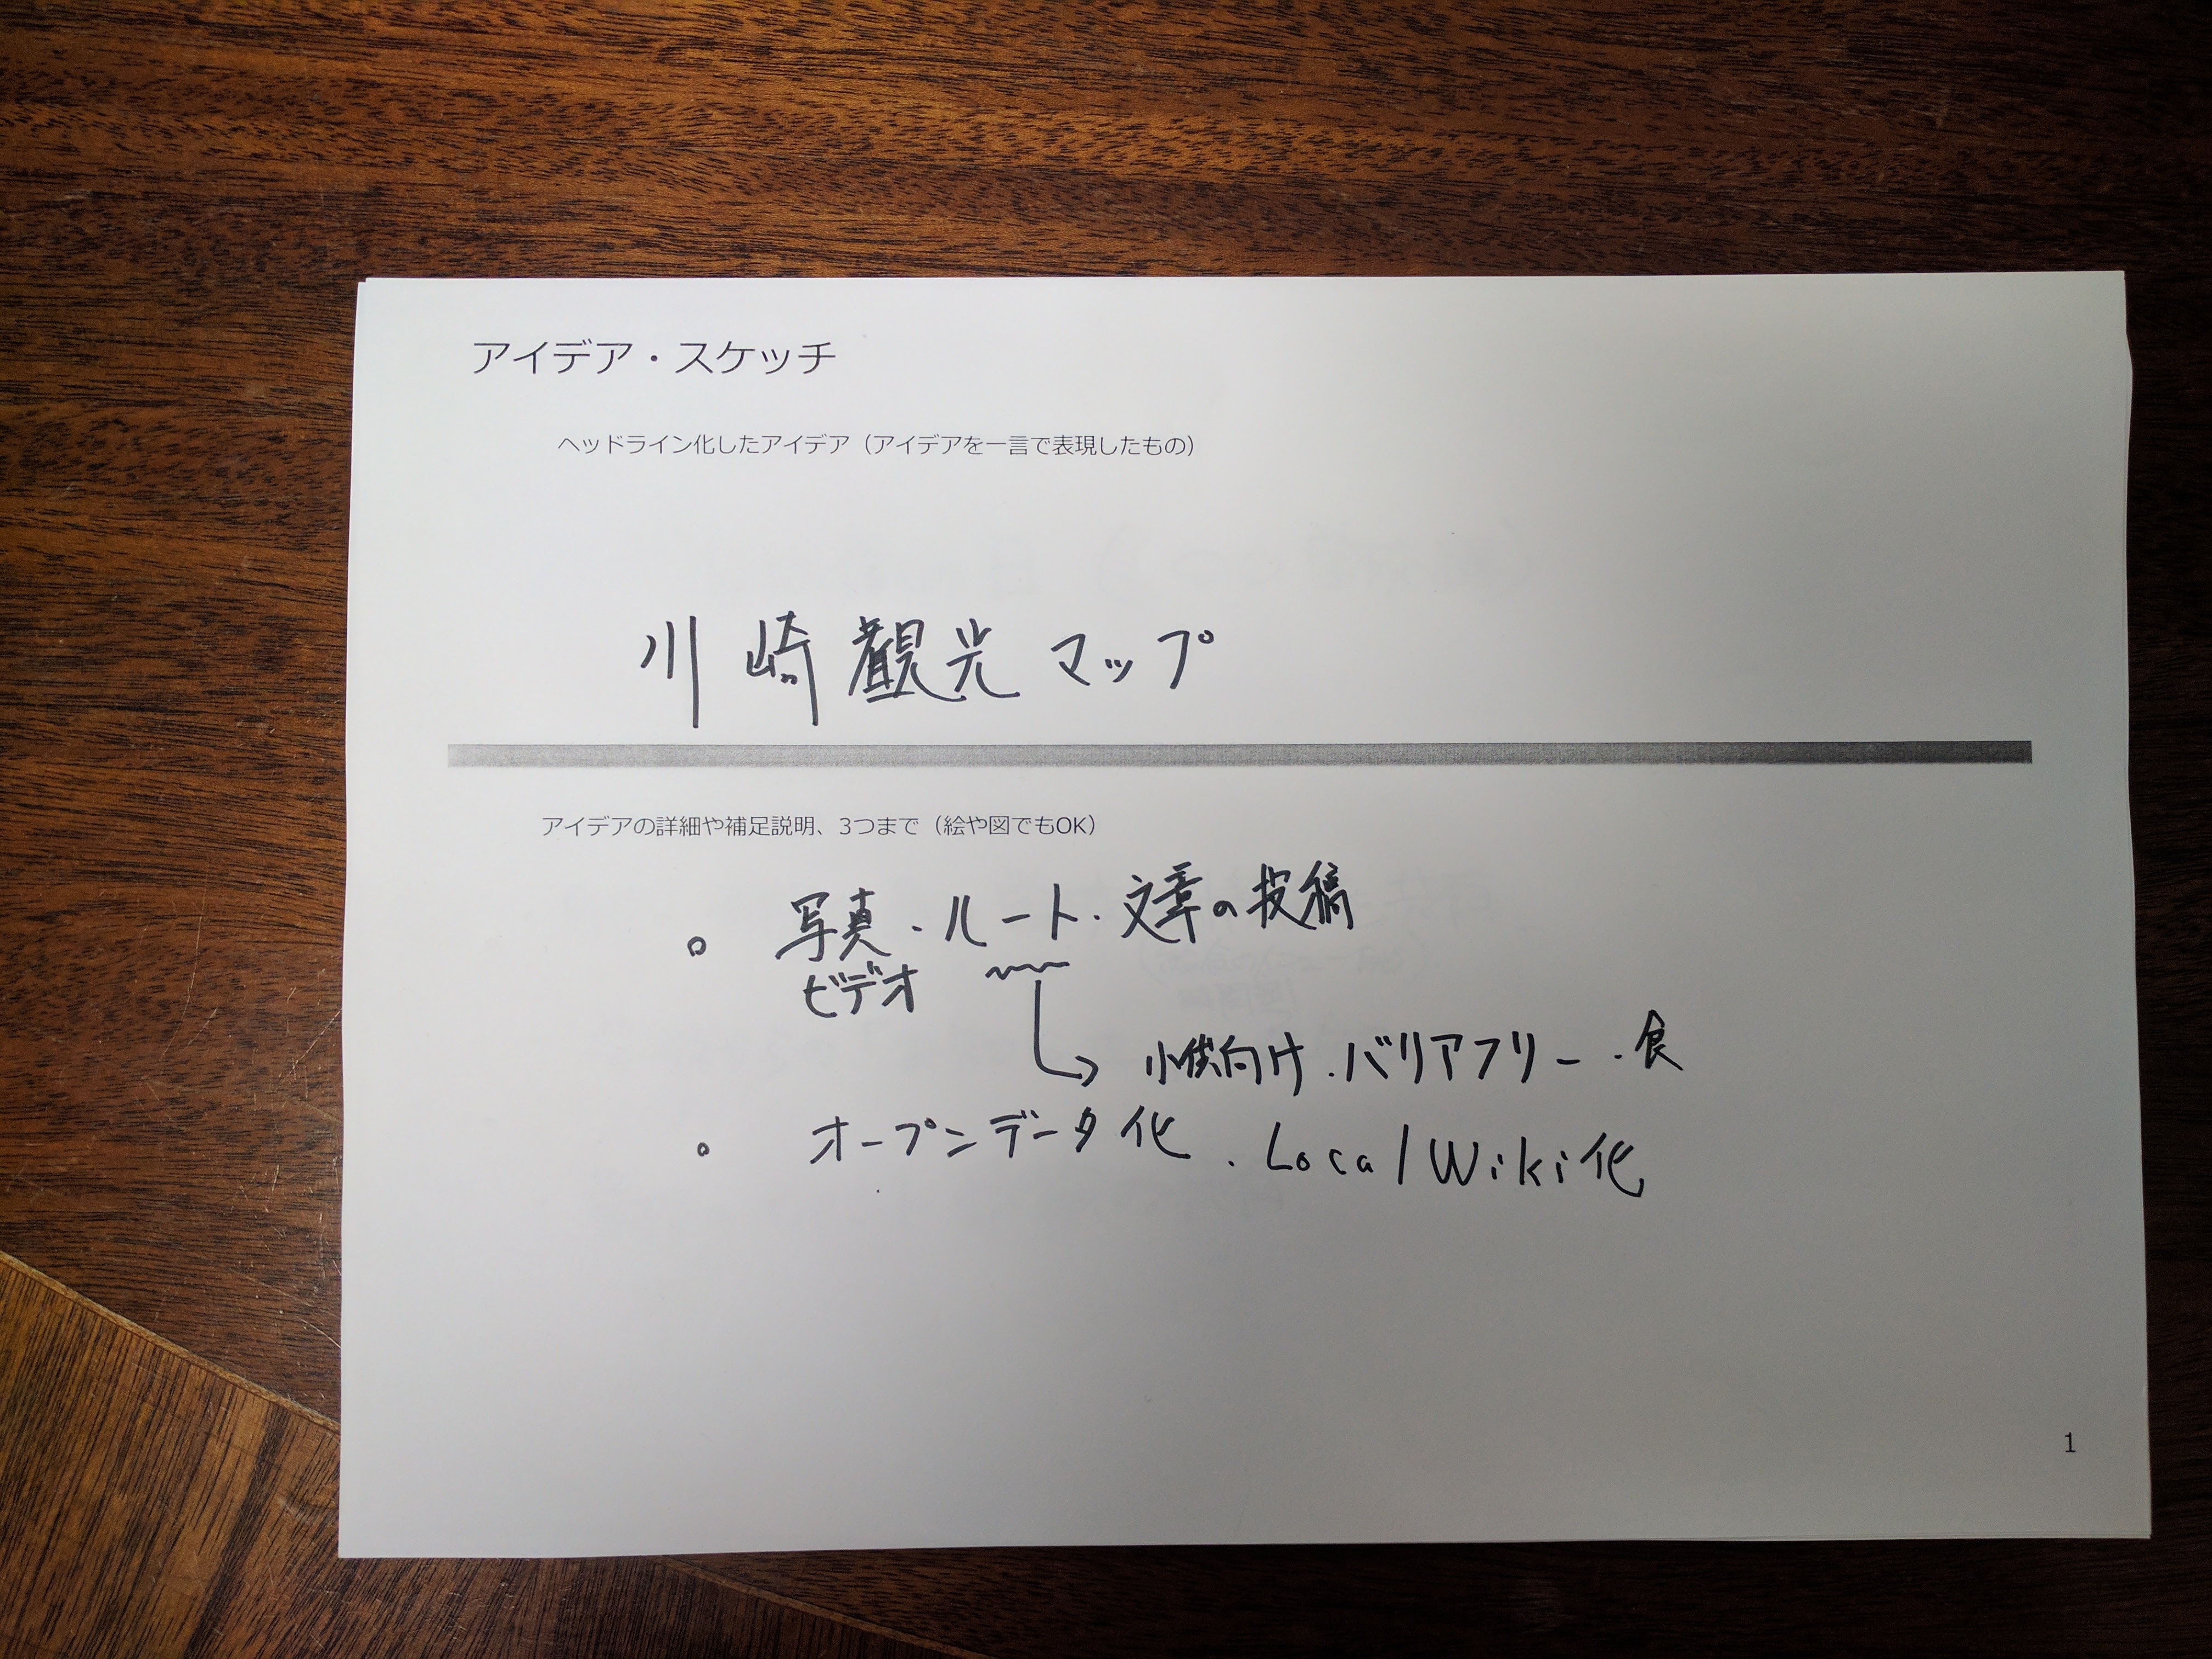 アイデア・スケッチ
ヘッドライン化したアイデア（アイデアを一言で表現したもの）
川崎観光マップ
アイデアの詳細や補足説明、3つまで（絵や図でもOK）
○ 写真・ルート・文章の投稿
ビデオ
小供向け・バリアフリー・食
○ オープンデータ化・LocalWiki化
1